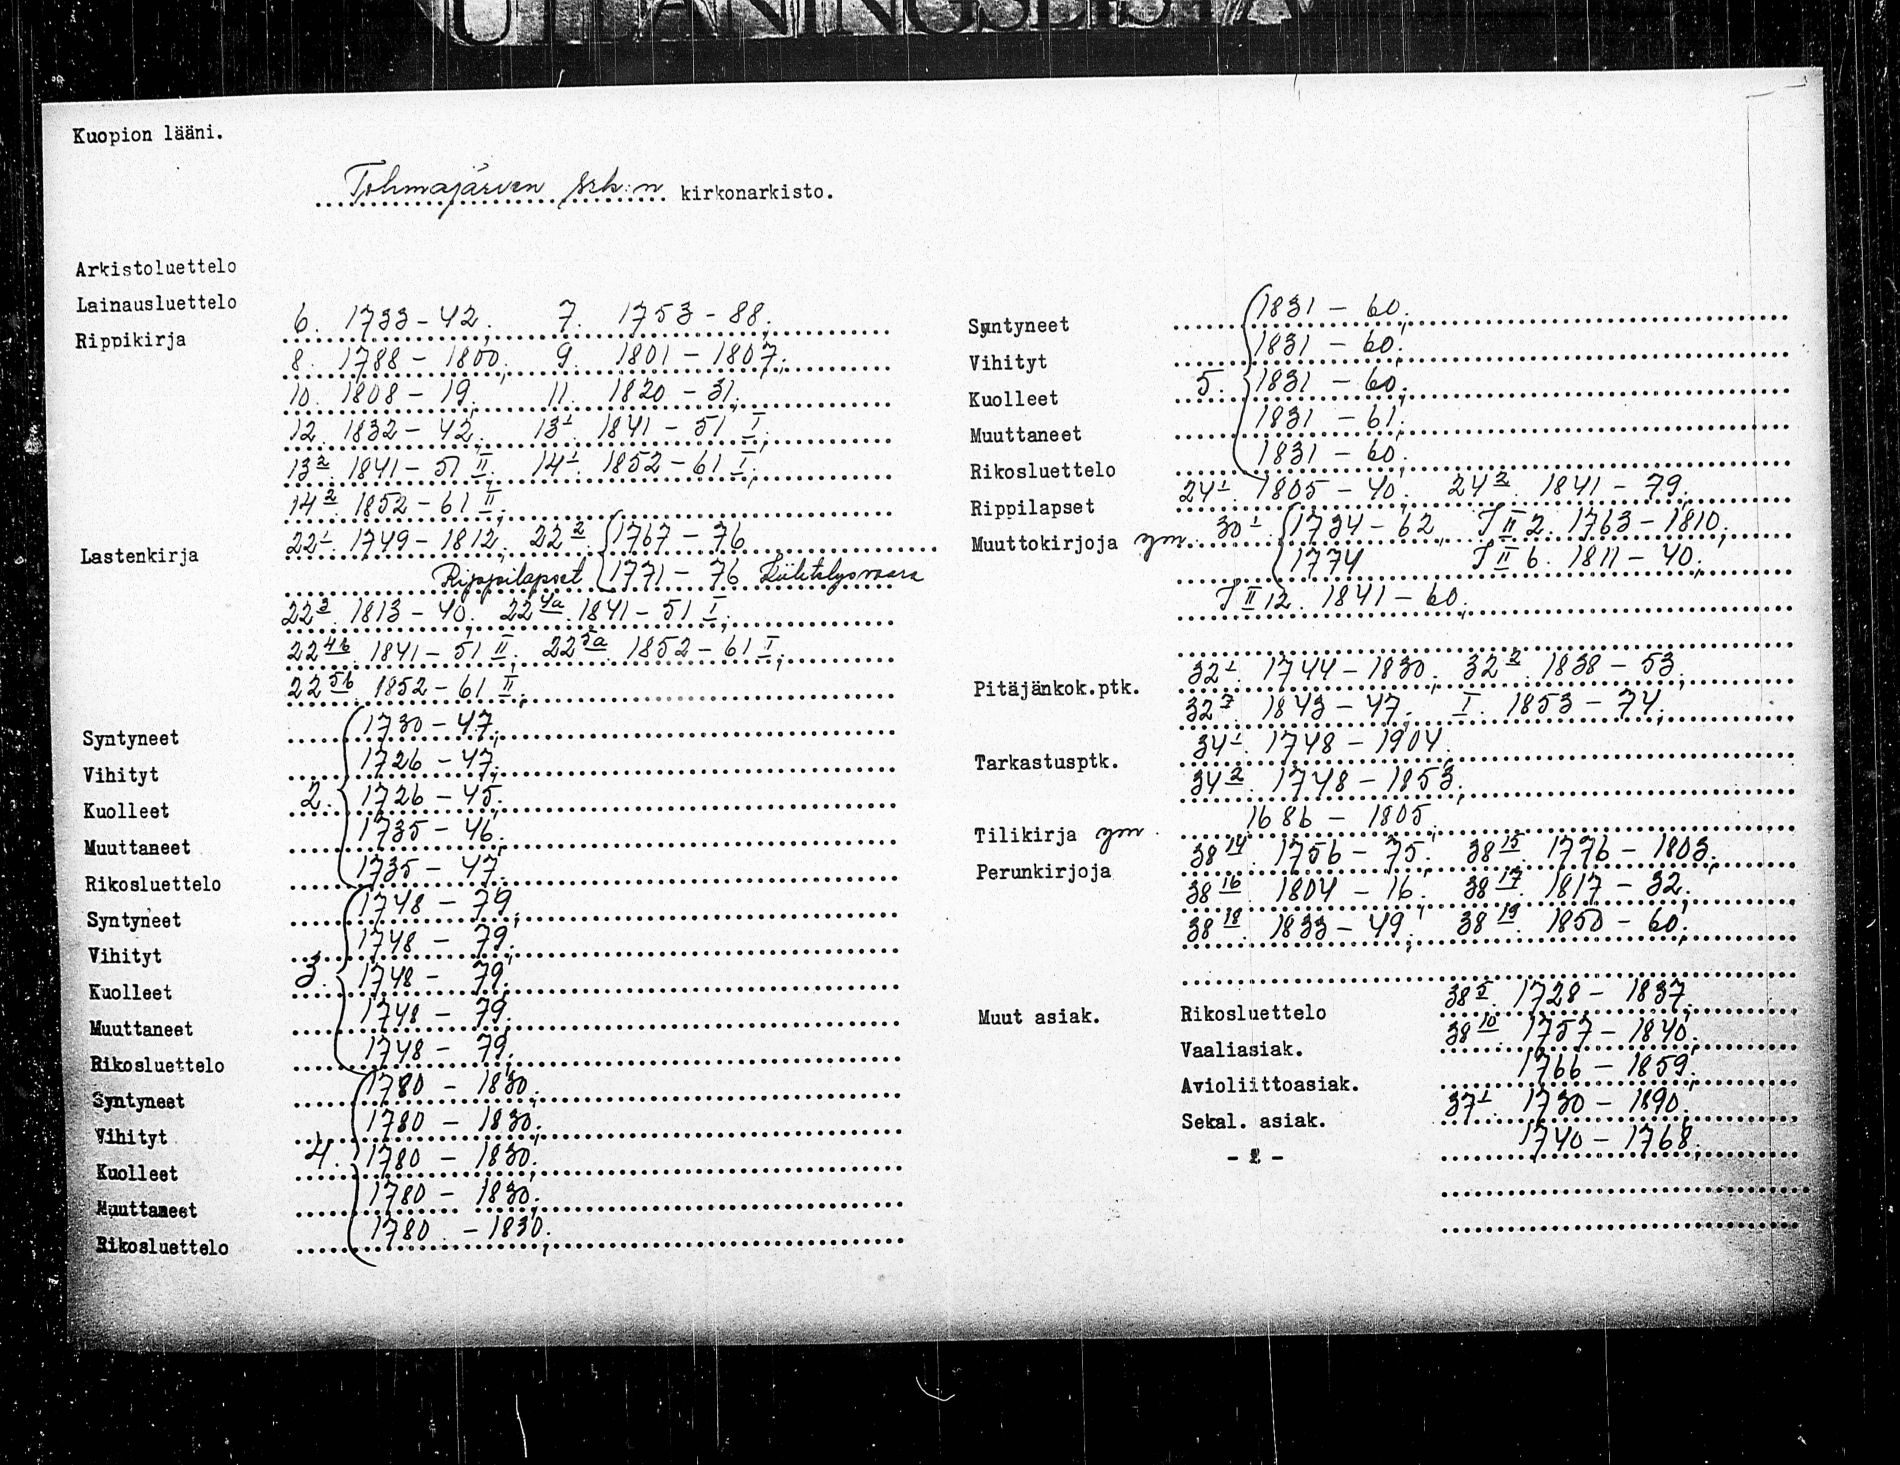 UTLÅNINGSLISTA
Kuopion lääni.
Tohmajärven srk:n kirkonarkisto.
Arkistoluettelo
Lainausluettelo
Rippikirja 6. 1733-42. 7. 1753-88.
8. 1788-1800. 9. 1801-1807.
10. 1808-19. 11. 1820-31.
12. 1832-42. 13¹. 1841-51 I.
13². 1841-51 II. 14¹. 1852-61 I.
14². 1852-61 II.
Lastenkirja 22¹. 1749-1812. 22². 1767-76
Rippilapset 1771-76 Kiihtelysvaara
22³. 1813-40. 22⁴ᵃ. 1841-51 I.
22⁴ᵇ. 1841-51 II. 22⁵ᵃ. 1852-61 I.
22⁵ᵇ. 1852-61 II.
Syntyneet 1730-47.
Vihityt 1726-47.
Kuolleet 2. 1726-45.
Muuttaneet 1735-46.
Rikosluettelo 1735-47.
Syntyneet 1748-79.
Vihityt 1748-79.
Kuolleet 3. 1748-79.
Muuttaneet 1748-79.
Rikosluettelo 1748-79.
Syntyneet 1780-1830.
Vihityt 1780-1830.
Kuolleet 4. 1780-1830.
Muuttaneet 1780-1830.
Rikosluettelo 1780-1830.
Syntyneet 1831-60.
Vihityt 1831-60.
Kuolleet 5. 1831-60.
Muuttaneet 1831-61.
Rikosluettelo 1831-60.
Rippilapset 24¹. 1805-40. 24². 1841-79.
Muuttokirjoja ym. 30¹. 1734-62. I II 2. 1763-1810.
1774 I II 6. 1811-40.
I II 12. 1841-60.
Pitäjänkok.ptk. 32¹. 1744-1830. 32². 1838-53.
32³. 1843-47. I. 1853-74.
Tarkastusptk. 34¹. 1748-1904.
34². 1748-1853.
Tilikirja ym. 1686-1805.
Perunkirjoja 38¹⁴. 1756-75. 38¹⁵. 1776-1803.
38¹⁶. 1804-16. 38¹⁷. 1817-32.
38¹⁸. 1833-49. 38¹⁹. 1850-60.
Muut asiak. Rikosluettelo 38⁵. 1728-1837.
Vaaliasiak. 38¹⁰. 1757-1840.
Avioliittoasiak. 1766-1859.
Sekal. asiak. 37¹. 1730-1890.
- " - 1740-1768.